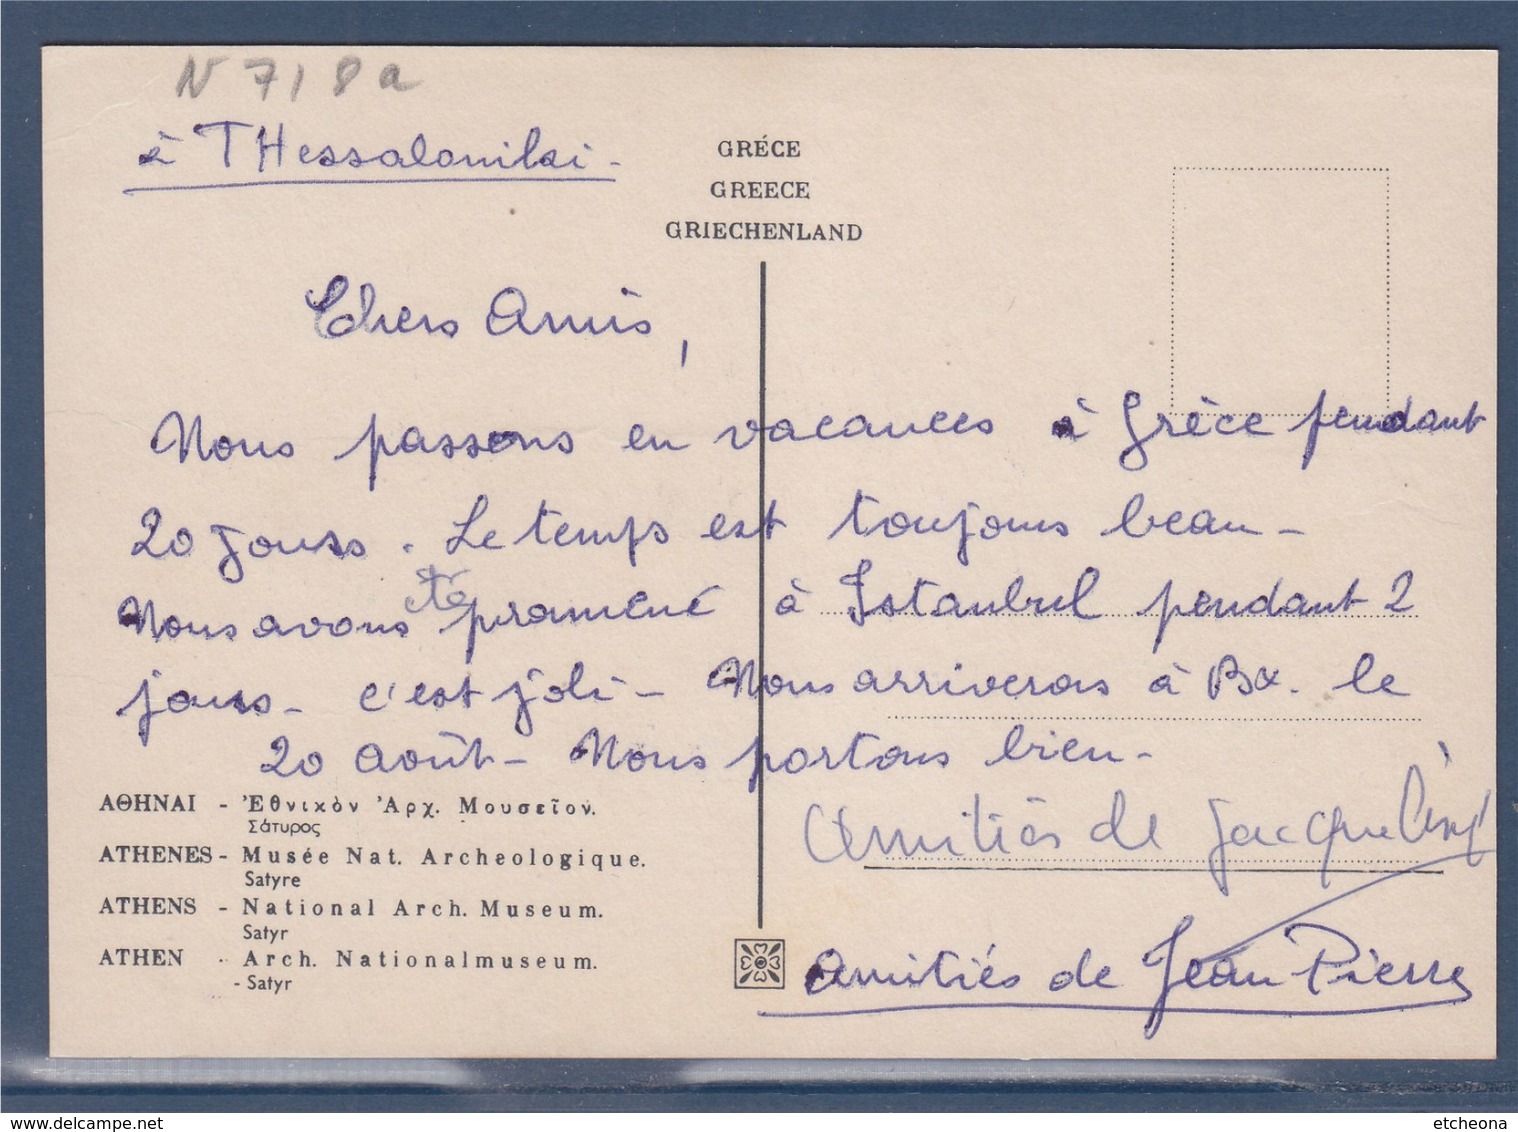 N 718a
à THessaloniki -
GRÉCE
GREECE
GRIECHENLAND
Chers Amis,
Nous passons en vacances à Grèce pendant
20 jours. Le temps est toujours beau -
Nous avons été promené à Istanbul pendant 2
jours - c'est joli - Nous arriverons à Bx. le
20 août - Nous portons bien -
ΑΘΗΝΑΙ - Ἐθνικὸν Ἀρχ. Μουσεῖον.
Σάτυρος
ATHENES - Musée Nat. Archeologique.
Satyre
ATHENS - National Arch. Museum.
Satyr
ATHEN - Arch. Nationalmuseum.
- Satyr
Amitiés de Jacqueline
Amitiés de Jean Pierre
delcampe.net
etcheona